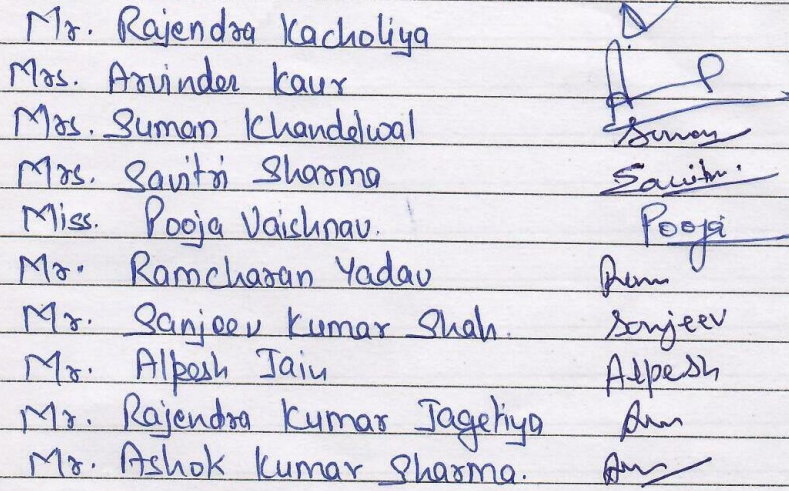 Mr. Rajendra Kacholiya
Mrs. Arvinder Kaur
Mrs. Suman Khandelwal Suman
Mrs. Savitri Sharma Savitri.
Miss. Pooja Vaishnav. Pooja
Mr. Ramcharan Yadav
Mr. Sanjeev Kumar Shah. Sanjeev
Mr. Alpesh Jain Alpesh
Mr. Rajendra Kumar Jagetiya
Mr. Ashok Kumar Sharma.